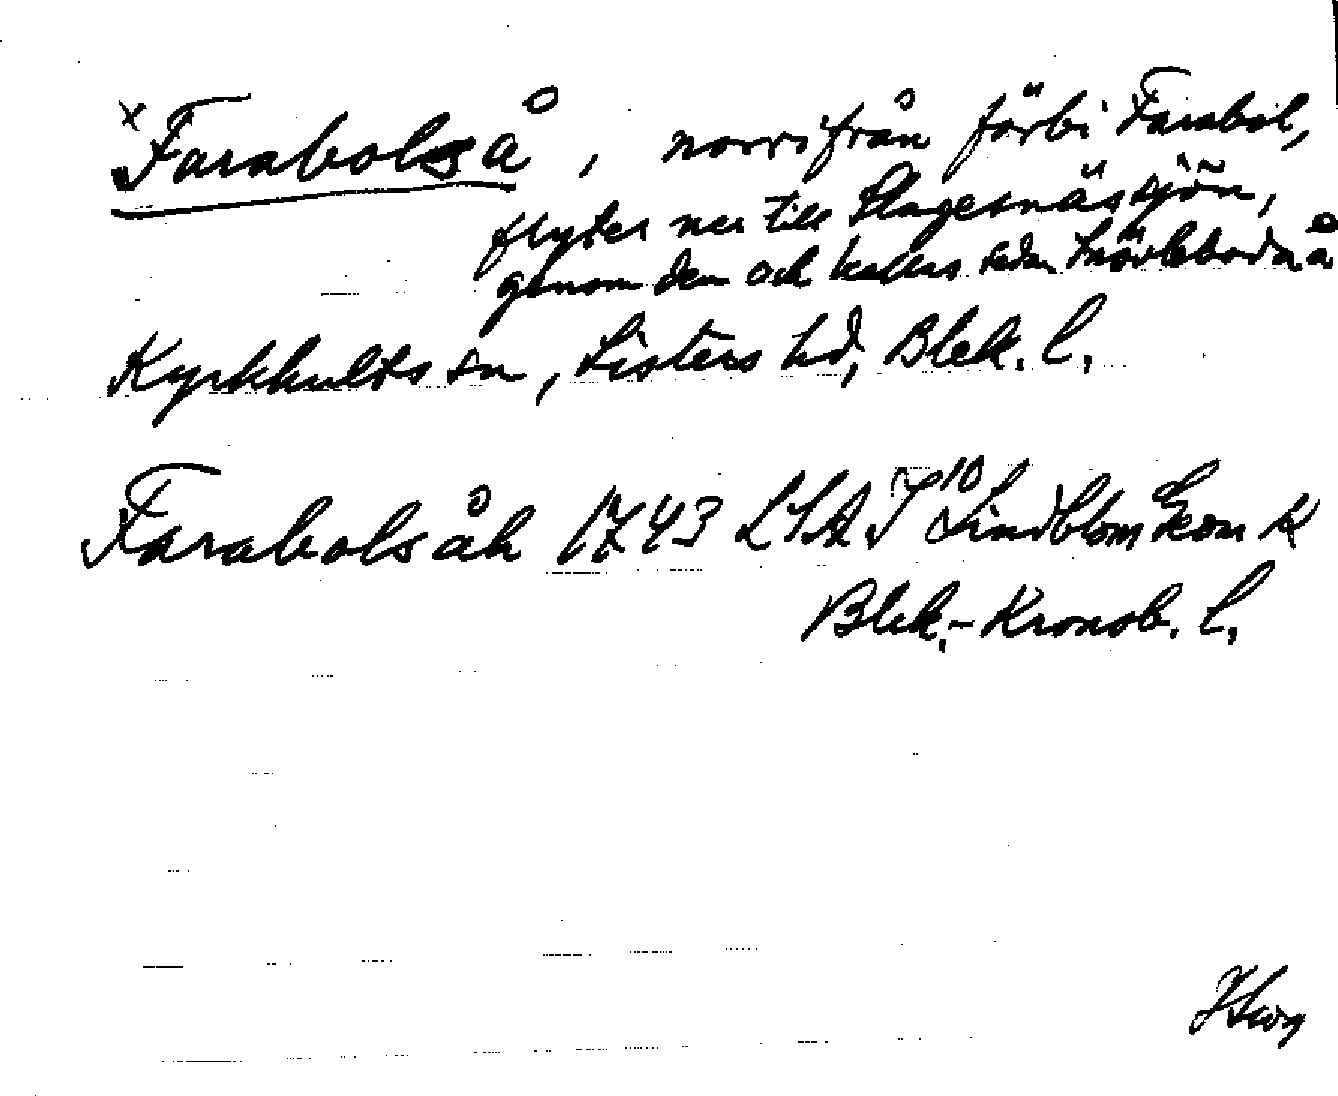 x Farabolså, norrifrån förbi Farabol,
flyter ner till Slagesnässjön,
genom den och kallas sedan Snövleboda å
Kyrkhults sn, Listers hd, Blek. l.
Farabolsåh 1743 LSA J 10 Lindblom Ekon K
Blek.-Kronob. l.